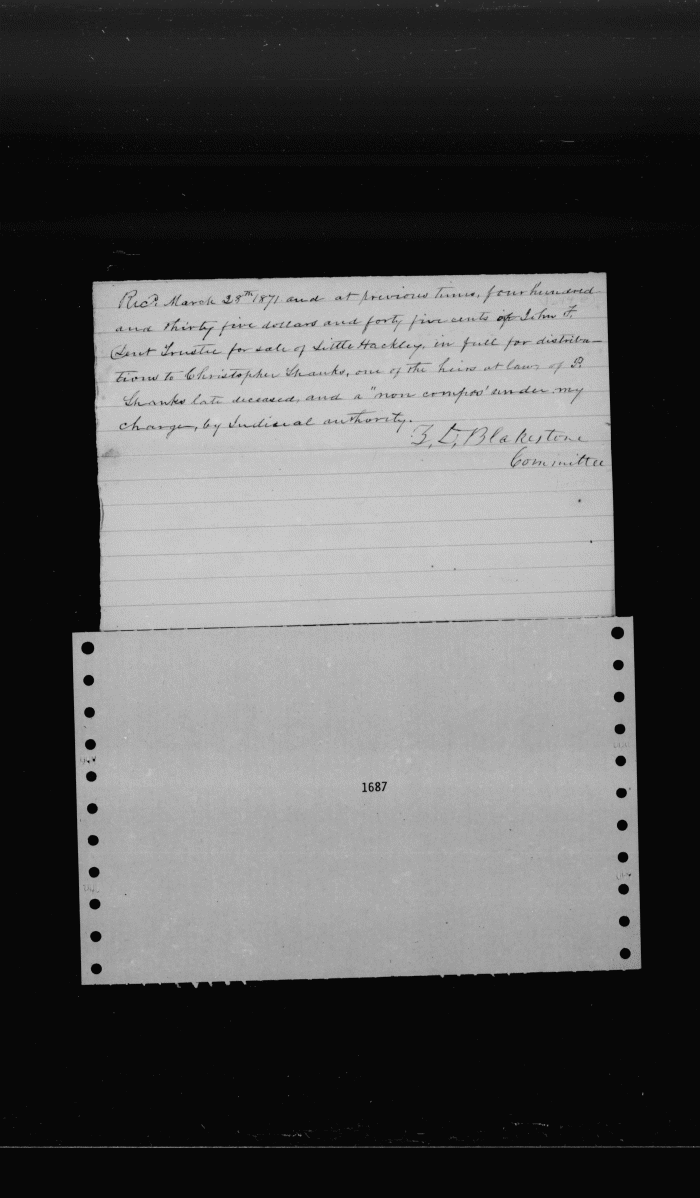 Recd. March 28th 1871 and at previous times, four hundred
and thirty five dollars and forty five cents of John F.
Dent Trustee for sale of Little Hackley, in full for distribu-
tions to Christopher Shanks, one of the heirs at law of P.
Shanks late deceased, and a "non compos" under my
charge, by Judicial authority.
Z. D. Blakistone
Committee
1687